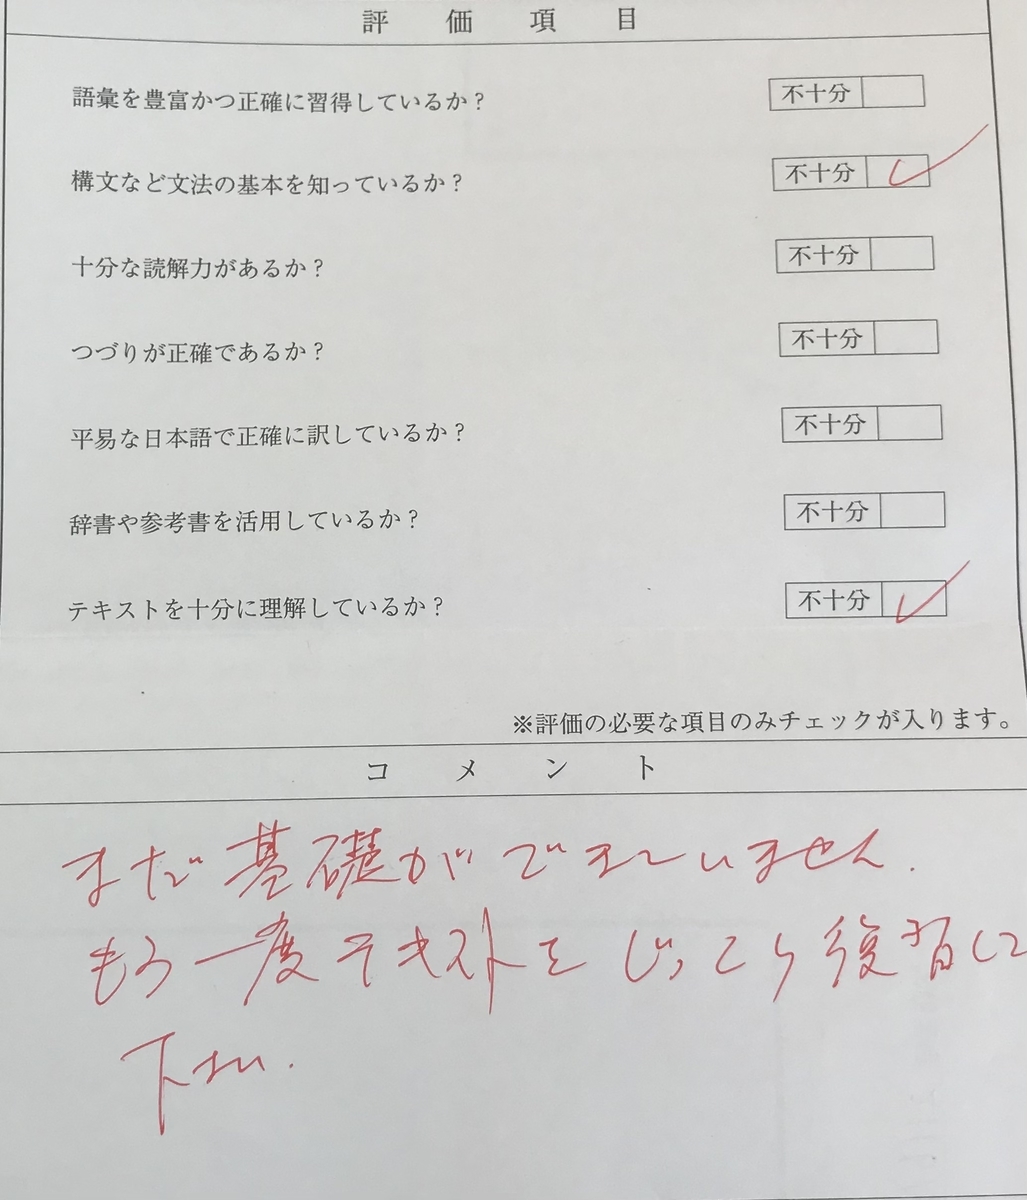 評価項目
語彙を豊富かつ正確に習得しているか？ 不十分
構文など文法の基本を知っているか？ 不十分
十分な読解力があるか？ 不十分
つづりが正確であるか？ 不十分
平易な日本語で正確に訳しているか？ 不十分
辞書や参考書を活用しているか？ 不十分
テキストを十分に理解しているか？ 不十分
※評価の必要な項目のみチェックが入ります。
コメント
まだ基礎ができていません.
もう一度テキストをじっくり復習して
下さい.